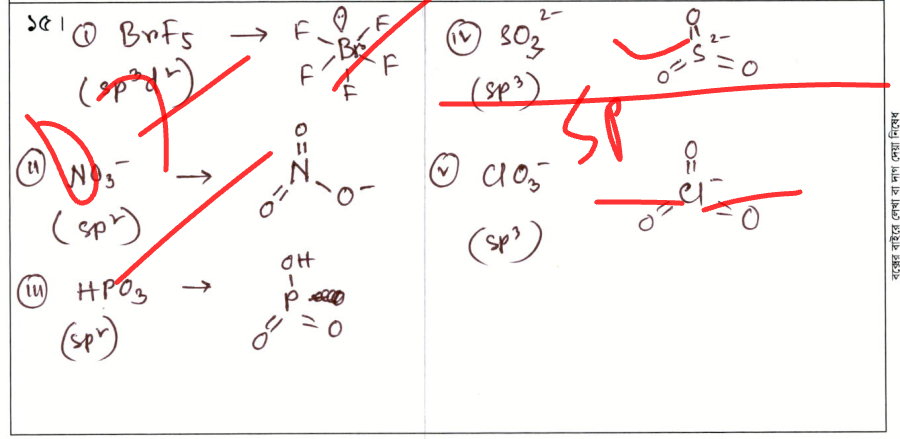 ১৫।
(i) BrF5 → F F Br F F F
(sp³d²)
(ii) NO3⁻ → O N O O⁻
(sp²)
(iii) HPO3 → OH P O O
(sp²)
(iv) SO3²⁻ O S²⁻ O O
(sp³)
Sp
(v) ClO3⁻ O Cl⁻ O O
(sp³)
বক্সের বাইরে লেখা বা দাগ দেয়া নিষেধ